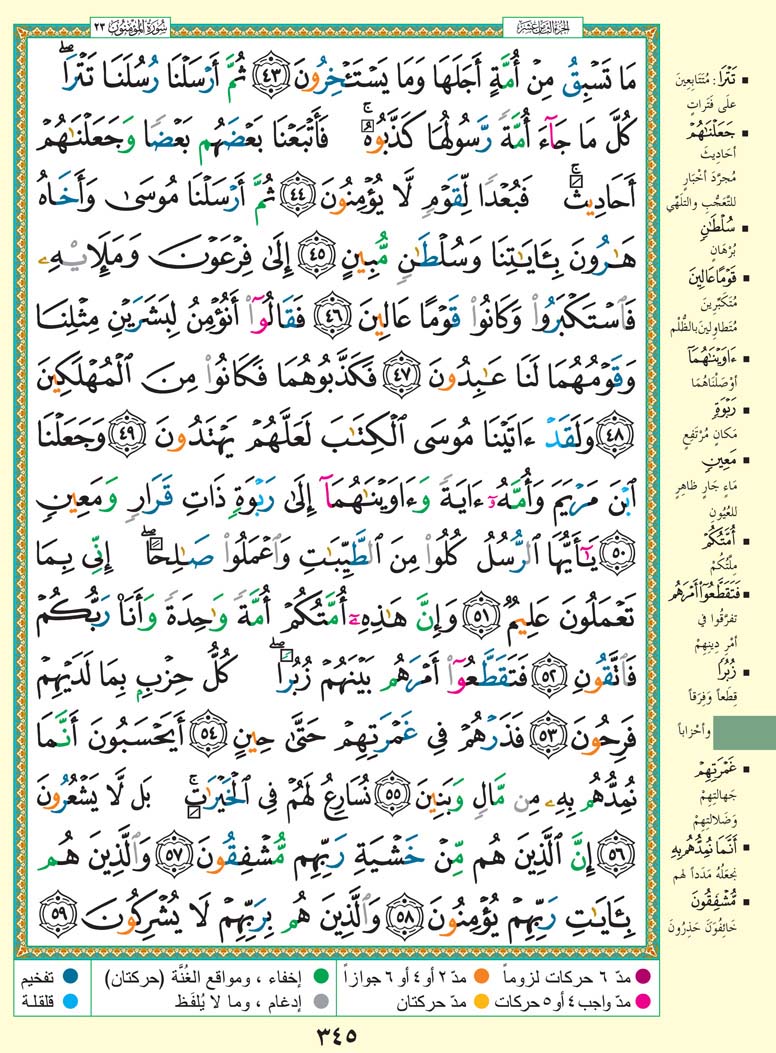 سُورَةُ المُؤْمِنُون ٢٣
الجزء الثامن عشر
مَا تَسْبِقُ مِنْ أُمَّةٍ أَجَلَهَا وَمَا يَسْتَـْٔخِرُونَ ٤٣ ثُمَّ أَرْسَلْنَا رُسُلَنَا تَتْرَا ۖ
كُلَّ مَا جَآءَ أُمَّةً رَّسُولُهَا كَذَّبُوهُ ۚ فَأَتْبَعْنَا بَعْضَهُم بَعْضًا وَجَعَلْنَٰهُمْ
أَحَادِيثَ ۚ فَبُعْدًا لِّقَوْمٍ لَّا يُؤْمِنُونَ ٤٤ ثُمَّ أَرْسَلْنَا مُوسَىٰ وَأَخَاهُ
هَٰرُونَ بِـَٔايَٰتِنَا وَسُلْطَٰنٍ مُّبِينٍ ٤٥ إِلَىٰ فِرْعَوْنَ وَمَلَإِي۟هِۦ
فَٱسْتَكْبَرُوا۟ وَكَانُوا۟ قَوْمًا عَالِينَ ٤٦ فَقَالُوٓا۟ أَنُؤْمِنُ لِبَشَرَيْنِ مِثْلِنَا
وَقَوْمُهُمَا لَنَا عَٰبِدُونَ ٤٧ فَكَذَّبُوهُمَا فَكَانُوا۟ مِنَ ٱلْمُهْلَكِينَ
٤٨ وَلَقَدْ ءَاتَيْنَا مُوسَى ٱلْكِتَٰبَ لَعَلَّهُمْ يَهْتَدُونَ ٤٩ وَجَعَلْنَا
ٱبْنَ مَرْيَمَ وَأُمَّهُۥٓ ءَايَةً وَءَاوَيْنَٰهُمَآ إِلَىٰ رَبْوَةٍ ذَاتِ قَرَارٍ وَمَعِينٍ
٥٠ يَٰٓأَيُّهَا ٱلرُّسُلُ كُلُوا۟ مِنَ ٱلطَّيِّبَٰتِ وَٱعْمَلُوا۟ صَٰلِحًا ۖ إِنِّى بِمَا
تَعْمَلُونَ عَلِيمٌ ٥١ وَإِنَّ هَٰذِهِۦٓ أُمَّتُكُمْ أُمَّةً وَٰحِدَةً وَأَنَا۠ رَبُّكُمْ
فَٱتَّقُونِ ٥٢ فَتَقَطَّعُوٓا۟ أَمْرَهُم بَيْنَهُمْ زُبُرًا ۖ كُلُّ حِزْبٍۭ بِمَا لَدَيْهِمْ
فَرِحُونَ ٥٣ فَذَرْهُمْ فِى غَمْرَتِهِمْ حَتَّىٰ حِينٍ ٥٤ أَيَحْسَبُونَ أَنَّمَا
نُمِدُّهُم بِهِۦ مِن مَّالٍ وَبَنِينَ ٥٥ نُسَارِعُ لَهُمْ فِى ٱلْخَيْرَٰتِ ۚ بَل لَّا يَشْعُرُونَ
٥٦ إِنَّ ٱلَّذِينَ هُم مِّنْ خَشْيَةِ رَبِّهِم مُّشْفِقُونَ ٥٧ وَٱلَّذِينَ هُم
بِـَٔايَٰتِ رَبِّهِمْ يُؤْمِنُونَ ٥٨ وَٱلَّذِينَ هُم بِرَبِّهِمْ لَا يُشْرِكُونَ ٥٩
▪ تَتْرَا: مُتَتَابِعِينَ
عَلَى فَتَرَاتٍ
▪ جَعَلْنَاهُمْ
أَحَادِيثَ
مُجَرَّدَ أَخْبَارٍ
لِلتَّعَجُّبِ والتَّلَهِّي
▪ سُلْطَٰنٍ
بُرْهَانٍ
▪ قَوْمًا عَالِينَ
مُتَكَبِّرِينَ
مُتَطاوِلِينَ بالظُّلْمِ
▪ ءَاوَيْنَٰهُمَآ
أوْصَلْنَاهُمَا
▪ رَبْوَةٍ
مَكانٍ مُرْتَفِعٍ
▪ مَعِينٍ
مَاءٍ جَارٍ ظاهِرٍ
للعُيُونِ
▪ أُمَّتُكُمْ
مِلَّتُكُمْ
▪ فَتَقَطَّعُوٓا۟ أَمْرَهُم
تفرَّقُوا في
أمْرِ دِينِهِمْ
▪ زُبُرًا
قِطَعاً وَفِرَقاً
وأحْزاباً
▪ غَمْرَتِهِمْ
جَهالَتِهِمْ
وَضَلالَتِهِمْ
▪ أَنَّمَا نُمِدُّهُم بِهِ
نجعَلُهُ مَدَداً لهم
▪ مُّشْفِقُونَ
خَائِفُونَ حَذِرُونَ
مدّ ٦ حركات لزوماً مدّ ٢ أو ٤ أو ٦ جوازاً إخفاء ، ومواقع الغُنَّة (حركتان) تفخيم
مدّ واجب ٤ أو ٥ حركات مدّ حركتان إدغام ، وما لا يُلفَظ قلقلة
٣٤٥